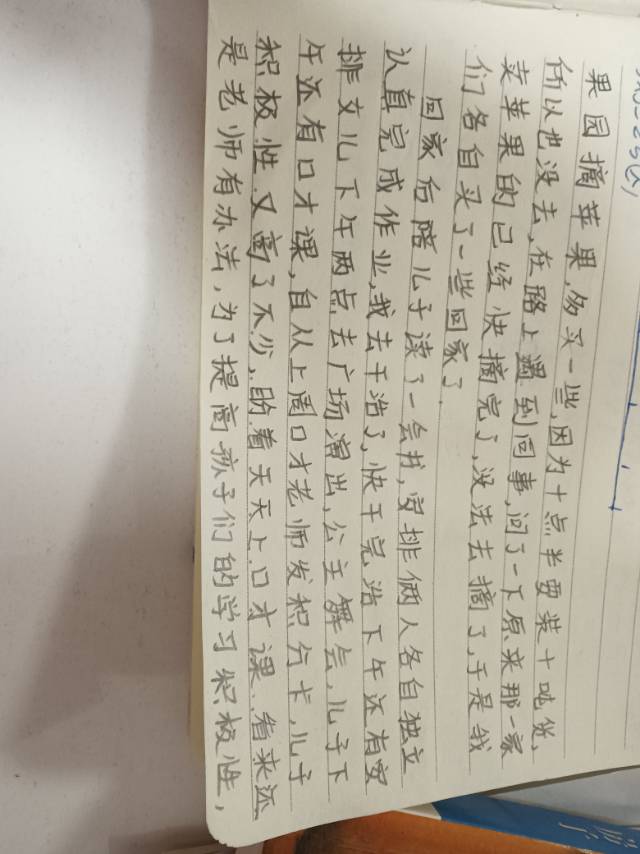 果园摘苹果,多买一些,因为十点半要装十吨货,
所以也没去,在路上遇到同事,问了一下原来那一家
卖苹果的已经快摘完了,没法去摘了,于是我
们各自买了一些回家了.
回家后陪儿子读了一会书,安排俩人各自独立
认真完成作业,我去干活了,快干完活下午还有安
排女儿下午两点去广场演出,公主舞会,儿子下
午还有口才课,自从上周口才老师发积分卡,儿子
积极性又高了不少,盼着天天上口才课、看来还
是老师有办法,为了提高孩子们的学习积极性,